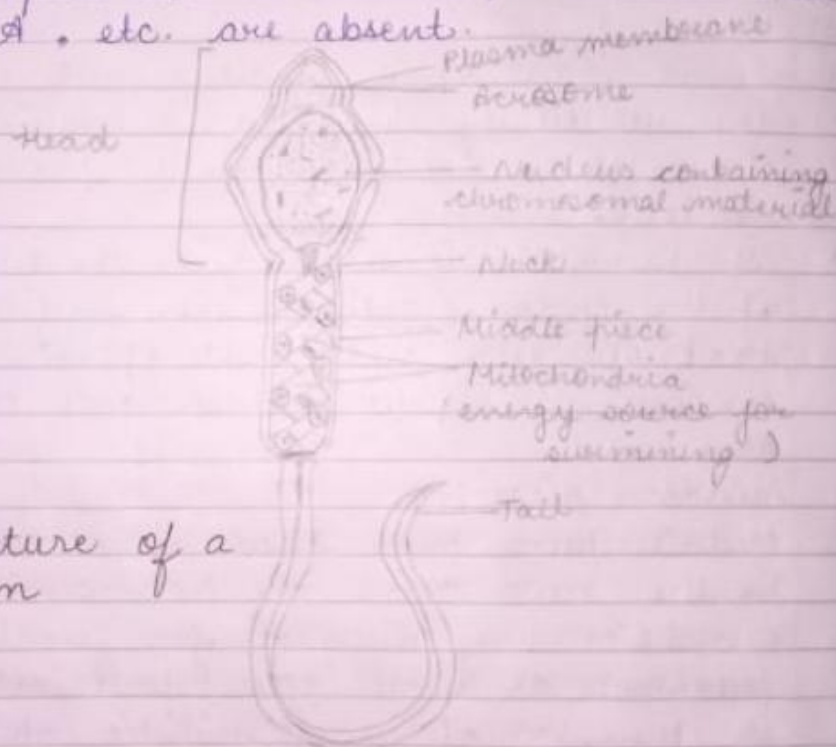 . etc. are absent.
Plasma membrane
Acrosome
Head
Nucleus containing
chromosomal material
Neck
Middle piece
Mitochondria
(energy source for
swimming)
Tail
ture of a
n